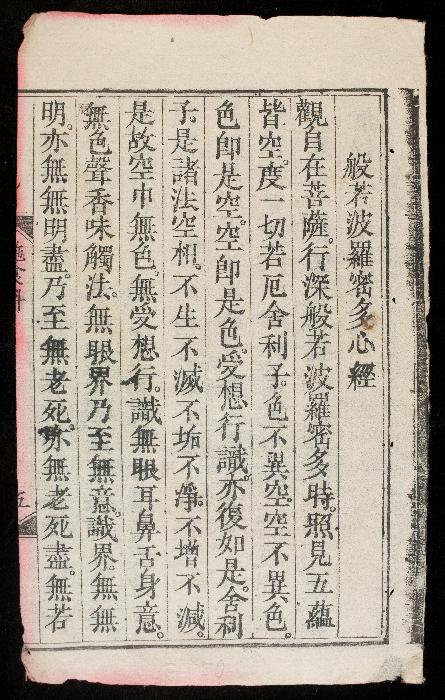 般若波羅密多心經
觀自在菩薩。行深般若波羅密多時。照見五蘊
皆空。度一切若厄舍利子。色不異空空不異色。
色卽是空。空卽是色。受想行識。亦復如是。舍利
子。是諸法空相。不生不滅。不垢不淨。不增不減。
是故空中無色。無受想行。識無眼耳鼻舌身意。
無色聲香味觸法。無眼界乃至無意。識界無無
明。亦無無明盡。乃至無老死。亦無老死盡。無若
五